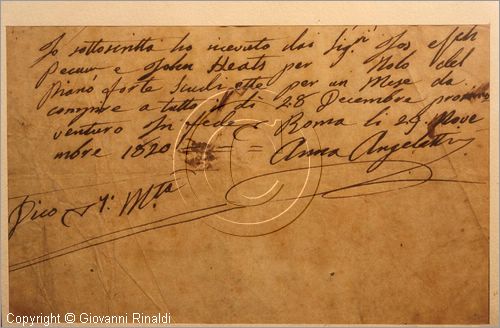 Io sottoscritta ho ricevuto dai Sig.ri Jos effeh
Pecuur e John Heats per Nolo del
Piano forte Scudi otto per un Mese da
compire a tutto il di 28 Decembre prossi
venturo In fede Roma li 29 Nove
mbre 1820 = = = Anna Angeletti
Dico  M.ta
Copyright © Giovanni Rinaldi